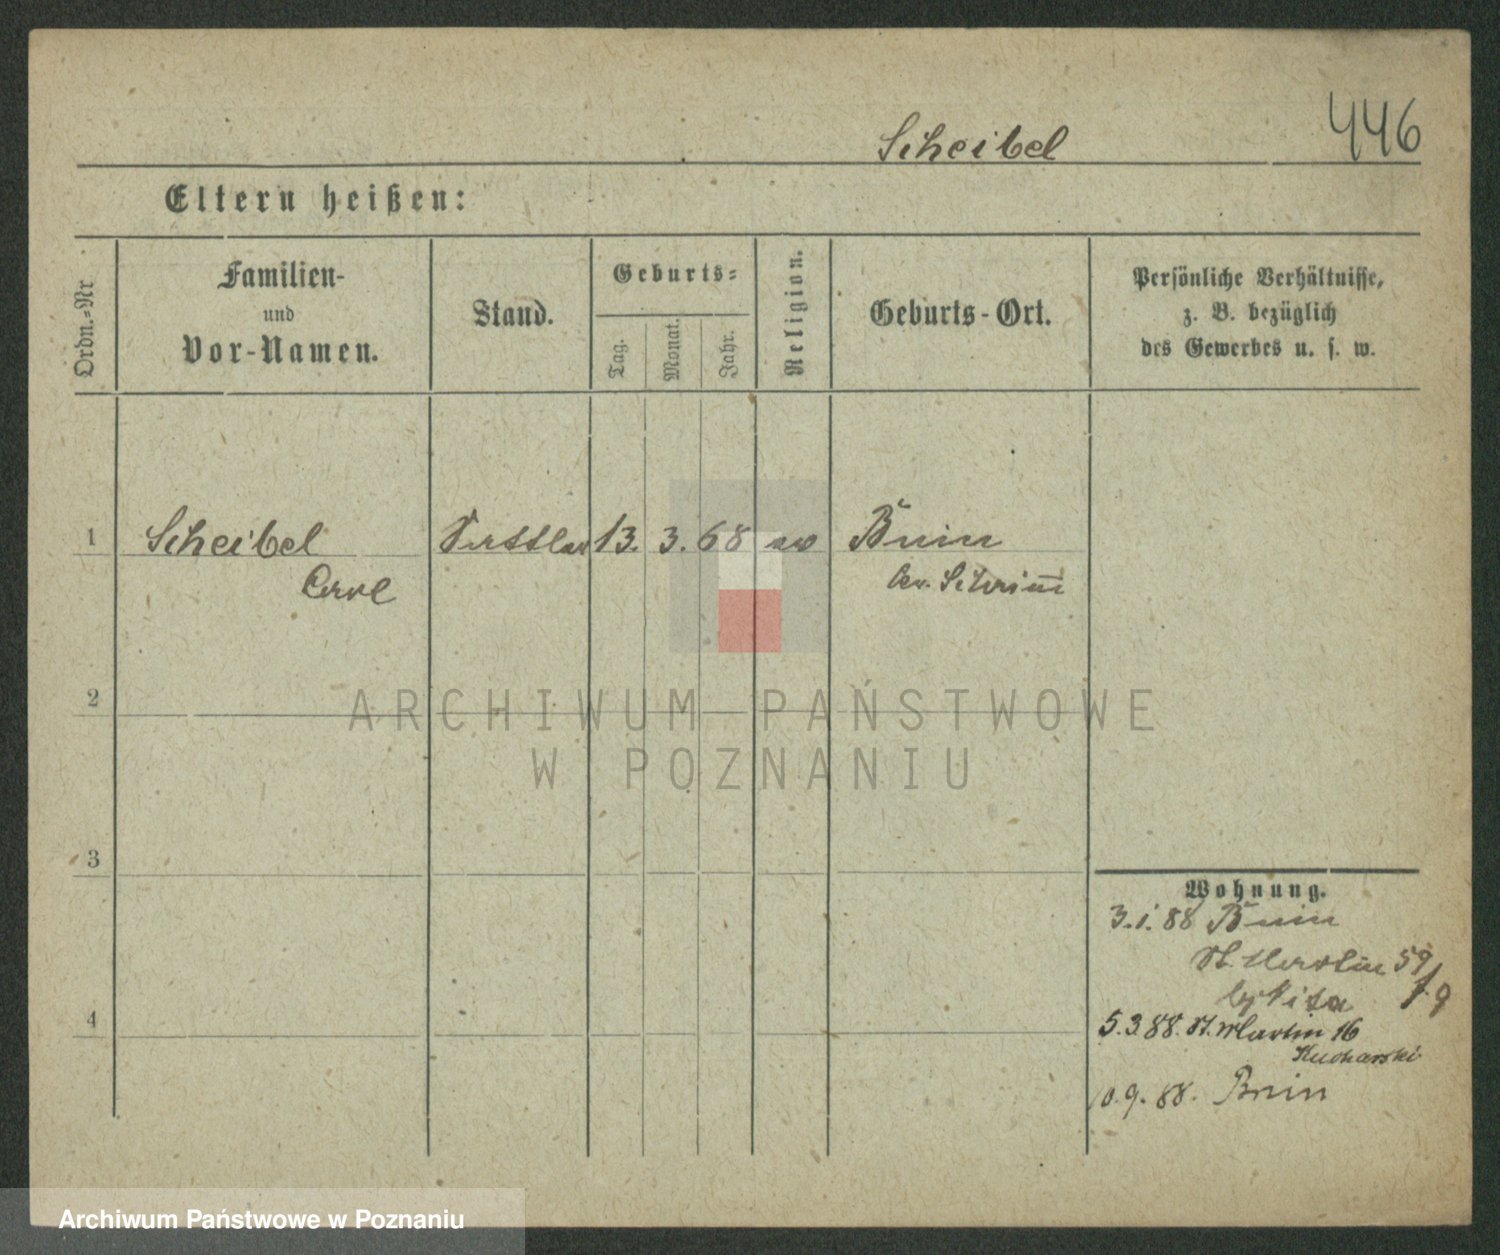 Scheibel 446
Eltern heißen:
Ordn.-Nr
Familien-
und
Vor-Namen.
Stand.
Geburts-
Tag.
Monat.
Jahr.
Religion.
Geburts-Ort.
Persönliche Verhältnisse,
z. B. bezüglich
des Gewerbes u. s. w.
1 Scheibel 13. 3. 68 Bnin
Carl Kr. Schrimm
2
3
4
Wohnung.
3.1.88 Bnin
St. Martin 59
5.3.88. St. Martin 16
Kucharski
10.9.88. Bnin
ARCHIWUM PAŃSTWOWE
W POZNANIU
Archiwum Państwowe w Poznaniu